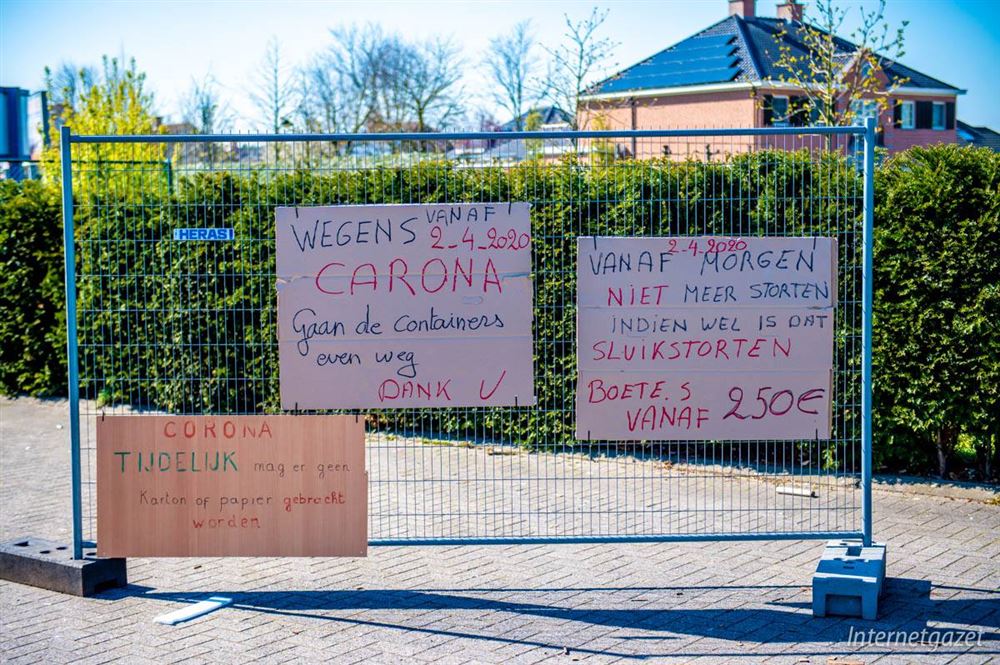 HERAS
WEGENS VANAF
2-4-2020
CARONA
Gaan de containers
even weg
DANK U
2-4-2020
VANAF MORGEN
NIET MEER STORTEN
INDIEN WEL IS DAT
SLUIKSTORTEN
BOETE.S
VANAF 250€
CORONA
TIJDELIJK mag er geen
Karton of papier gebracht
worden
Internetgazet